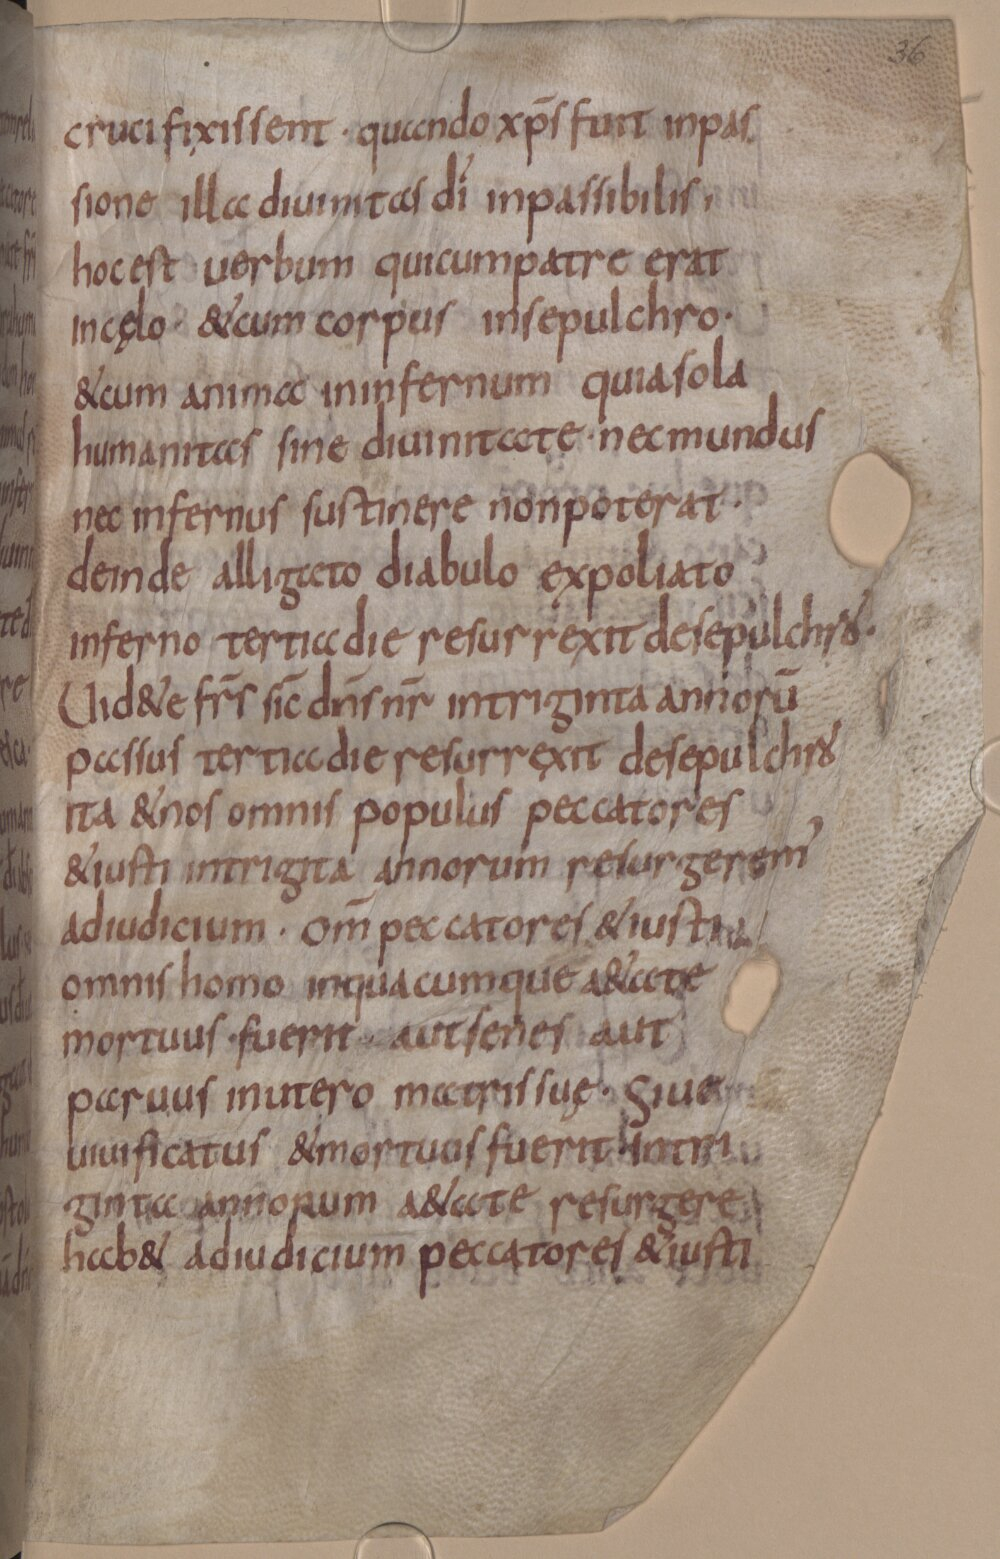 36
crucifixissent · quando xp̄s fuit inpas
sione illa diuinitas dī inpassibilis,
hoc est uerbum qui cum patre erat
in cęlo & cum corpus in sepulchro·
& cum anima in infernum quia sola
humanitas sine diuinitate · nec mundus
nec infernus sustinere non poterat ·
deinde alligato diabulo expoliato
inferno tertia die resurrexit de sepulchro·
Uid&e fr̄s sic̄ dn̄s nr̄ in triginta annorū
passus tertia die resurrexit de sepulchro
ita & nos omnis populus peccatores
& iusti in trigita annorum resurgerem'
ad iudicium · om̄ peccatores & iusti
omnis homo in quacumque a&ate
mortuus · fuerit · aut senes aut
paruus in utero matris suę · Siue
uiuificatus & mortuus fuerit in tri
ginta annorum a&ate resurgere
hab& ad iudicium peccatores & iusti